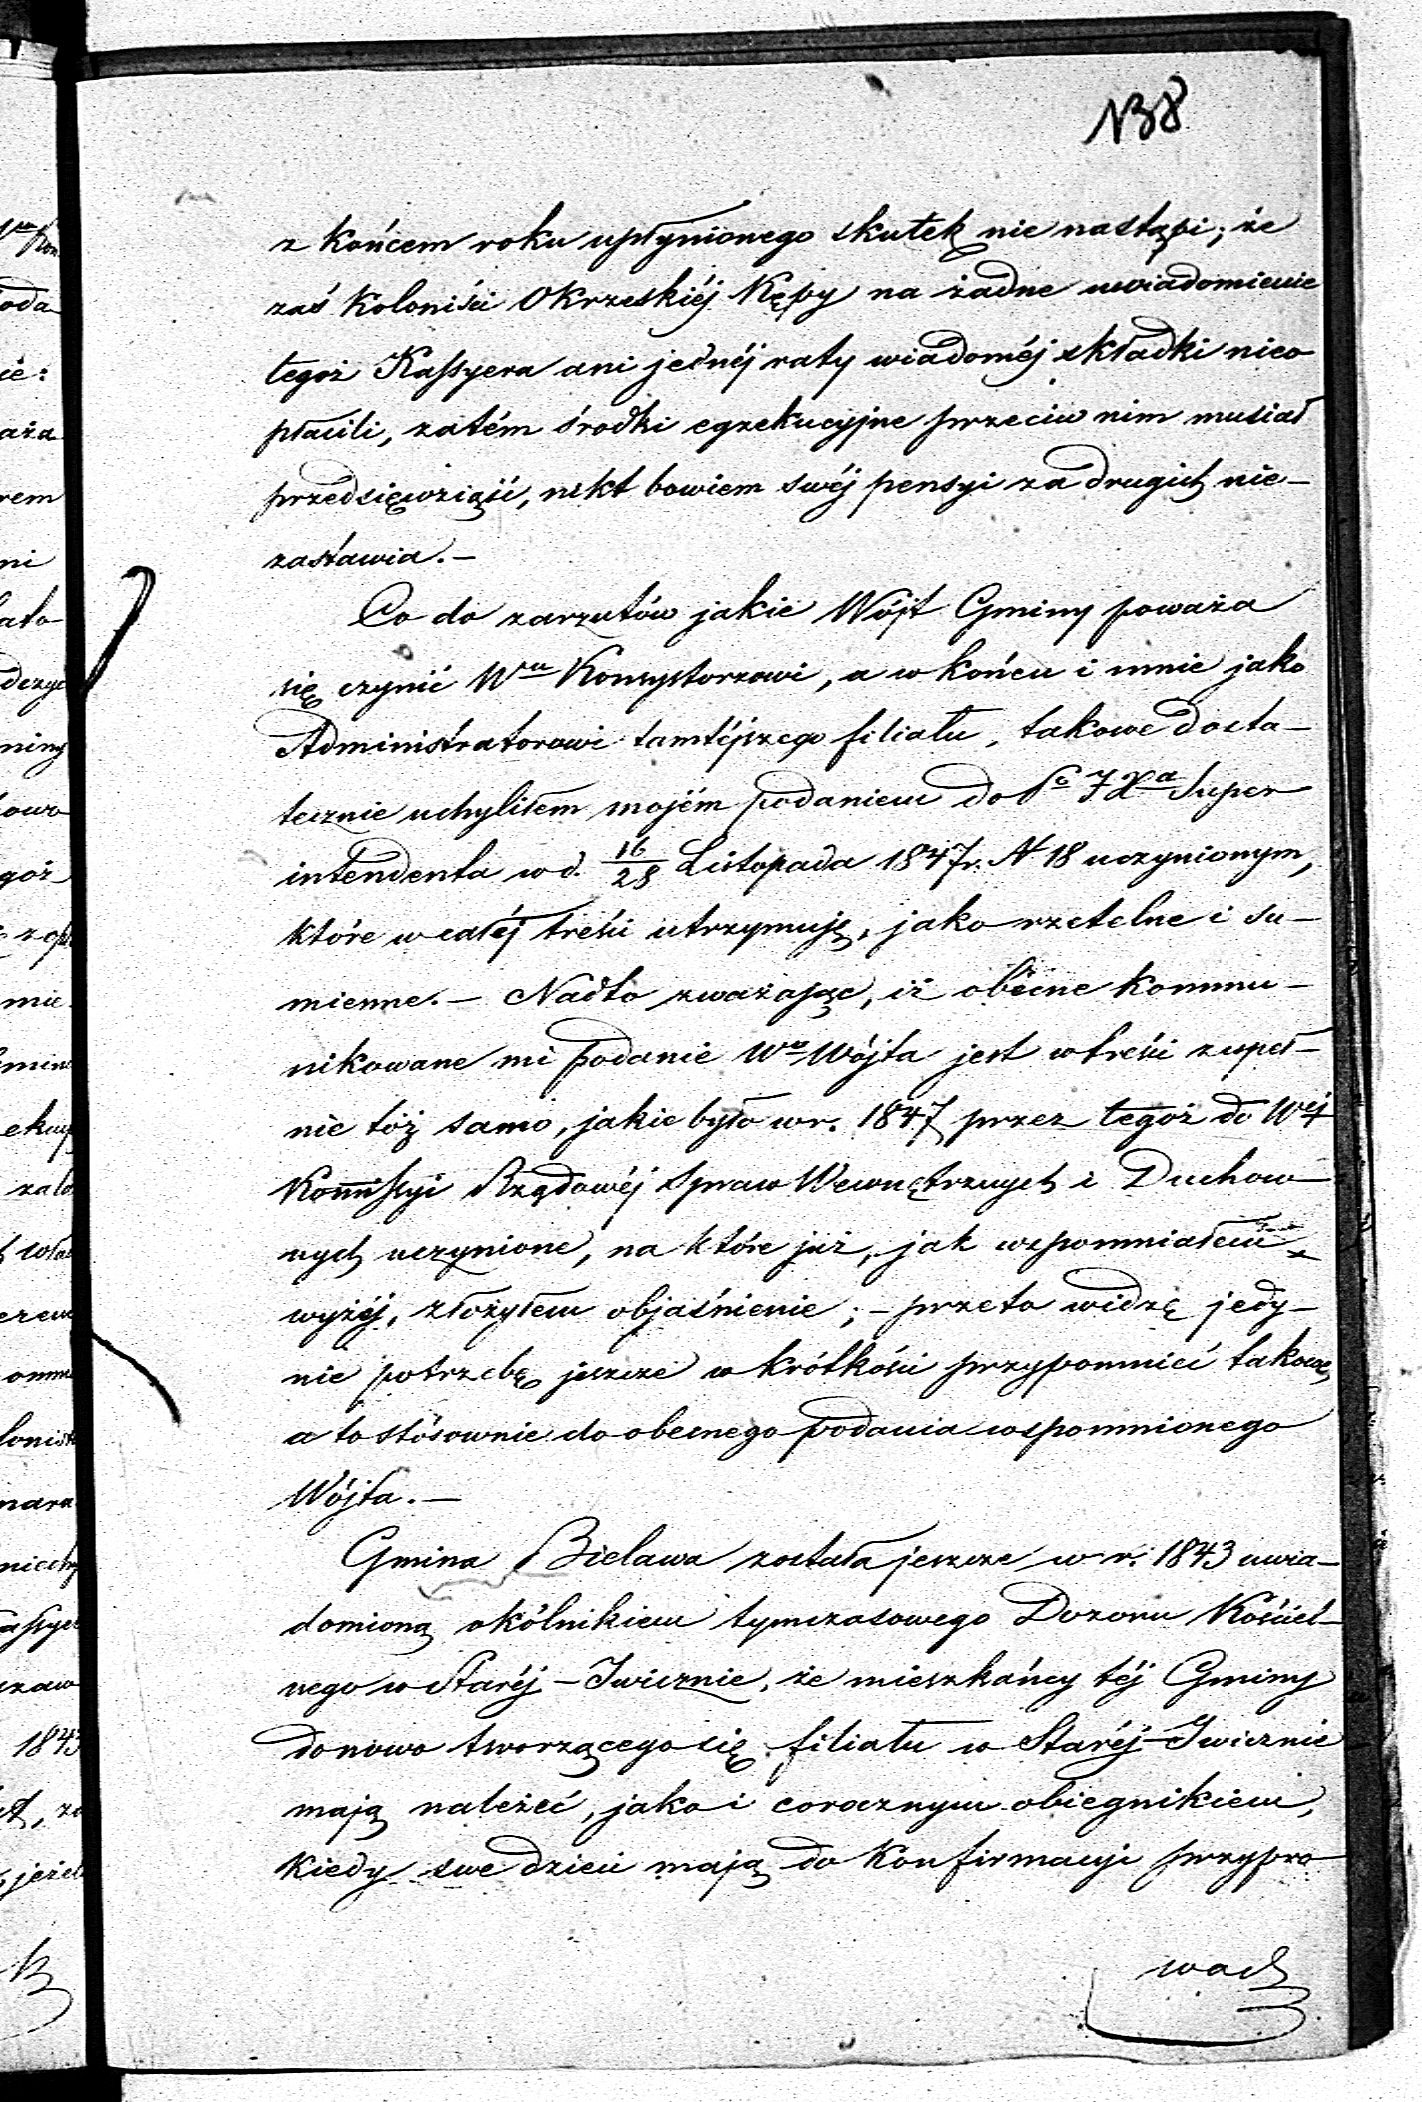 138
z końcem roku upłynionego skutek nie nastąpi; że
zaś Koloniści Okrzeskiéj Kępy na żadne uwiadomienie
tegoż Kassyera ani jednéj raty wiadoméj składki nieo
płacili, zatém środki egzekucyjne przeciw nim musiał
przedsięwziąść, nikt bowiem swéj pensyi za drugich nie-
zastawia.-
Co do zarzutów jakie Wójt Gminy poważa
się czynić Wmu Konsystorzowi, a w końcu i mnie jako
Administratorowi tamtéjszego filiału, takowe dosta-
tecznie uchyliłem mojém podaniem do Jgo Xa Super
intendenta w d. 16/28 Listopada 1847 r. N 18 uczynionym,
które w całéj treści utrzymuję, jako rzetelne i su-
mienne.- Nadto zważając, iż obecne kommu-
nikowane mi podanie Wo Wójta jest w treści zupeł-
nie tóż samo, jakie było w r. 1847 przez tegoż do Wéj
Kommissyi Rządowéj Spraw Wewnętrznych i Duchow-
nych uczynione, na które już, jak wspomniałem
wyżéj, złożyłem objaśnienie; - przeto widzę jedy-
nie potrzebę jeszcze w krótkości przypomnieć takowe,
a to stósownie do obecnego podania wspomnionego
Wójta.-
Gmina Bielawa została jeszcze w r. 1843 uwia-
domioną okólnikiem tymczasowego Dozoru Kościel-
nego w Staréj-Iwicznie, że mieszkańcy téj Gminy
do nowo tworzącego się filiału w Staréj-Iwicznie
mają należeć, jako i corocznym obiegnikiem,
kiedy swe dzieci mają do Konfirmacyi przypro
wadz